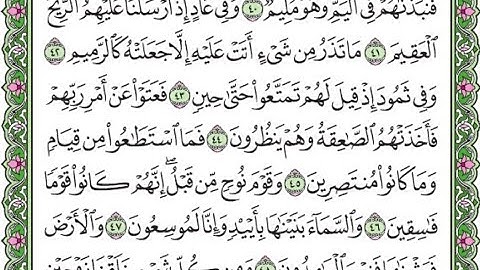 فَنَبَذْنَٰهُمْ فِى ٱلْيَمِّ وَهُوَ مُلِيمٌ ٤٠ وَفِى عَادٍ إِذْ أَرْسَلْنَا عَلَيْهِمُ ٱلرِّيحَ
ٱلْعَقِيمَ ٤١ مَا تَذَرُ مِن شَىْءٍ أَتَتْ عَلَيْهِ إِلَّا جَعَلَتْهُ كَٱلرَّمِيمِ ٤٢
وَفِى ثَمُودَ إِذْ قِيلَ لَهُمْ تَمَتَّعُوا۟ حَتَّىٰ حِينٍ ٤٣ فَعَتَوْا۟ عَنْ أَمْرِ رَبِّهِمْ
فَأَخَذَتْهُمُ ٱلصَّٰعِقَةُ وَهُمْ يَنظُرُونَ ٤٤ فَمَا ٱسْتَطَٰعُوا۟ مِن قِيَامٍ
وَمَا كَانُوا۟ مُنتَصِرِينَ ٤٥ وَقَوْمَ نُوحٍ مِّن قَبْلُ ۖ إِنَّهُمْ كَانُوا۟ قَوْمًا
فَٰسِقِينَ ٤٦ وَٱلسَّمَآءَ بَنَيْنَٰهَا بِأَيْي۟دٍ وَإِنَّا لَمُوسِعُونَ ٤٧ وَٱلْأَرْضَ